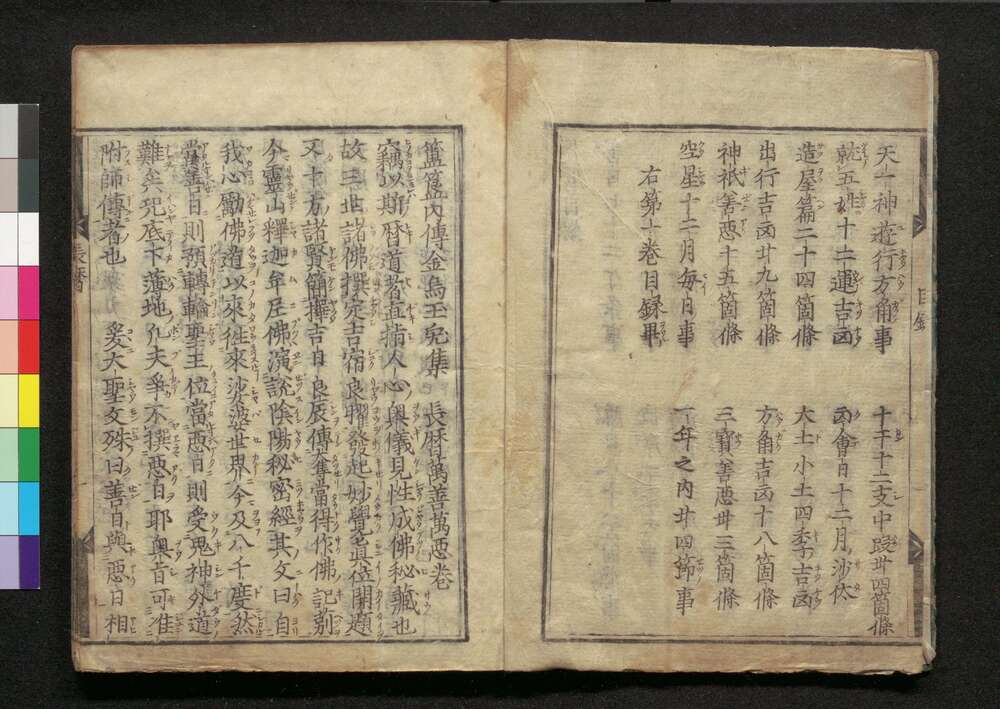 天一神遊行方角事　十干十二支中段廿四箇條
十二運吉凶　凶會日十二月沙汰
造屋篇二十四箇條　大土小土四季吉凶
出行吉凶廿九箇條　方角吉凶十八箇條
神祇善悪十五箇條　三寳善悪廿三箇條
空星十二月毎月事　一年之内廿四節事
右第一巻目録畢
目録
簠簋内傳金烏玉兎集　長暦萬善萬悪巻
竊以斯暦道者直指人心奥儀見性成佛秘蔵也
故三世諸佛撰定吉宿良曜發起妙覺真位開題
又十方諸賢簡擇吉日良辰傳奪當得作佛記別
今靈山釋迦牟尼佛演説陰陽秘密經其文曰自
我心勵佛道以來徃來沙婆世界今及八千度然
當善日則預轉輪聖王位當悪日則受鬼神外道
難矣况底下薄地凡夫爭不撰悪日耶奥旨可准
附師傳者也　爰大聖文殊曰善日與悪日相
長暦